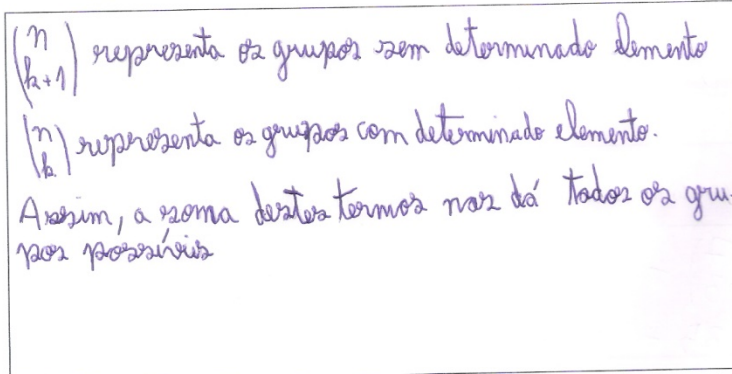 (n
k+1) representa os grupos sem determinado elemento
(n
k) representa os grupos com determinado elemento.
Assim, a soma destes termos nos dá todos os gru-
pos possíveis